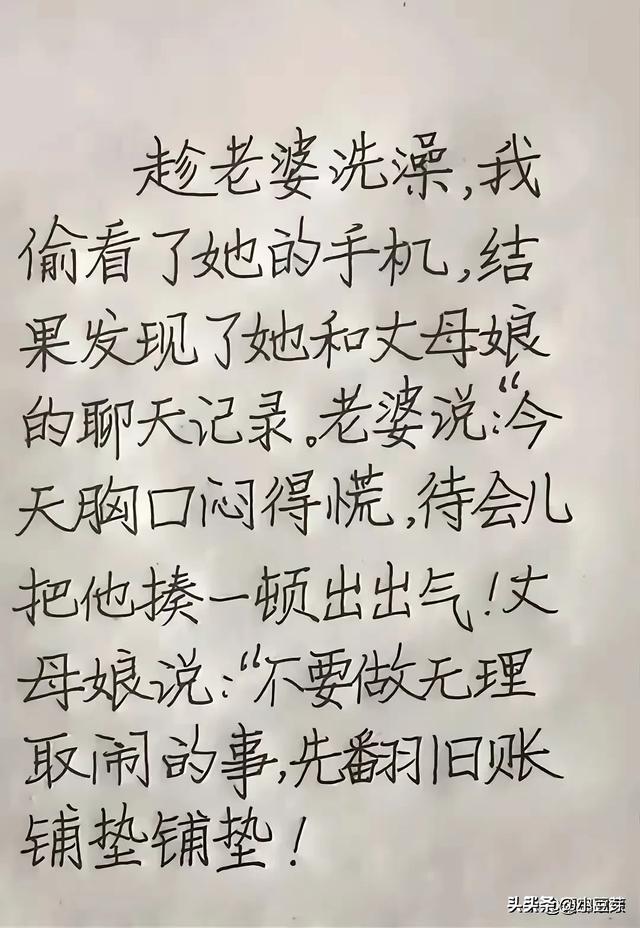 趁老婆洗澡,我
偷看了她的手机,结
果发现了她和丈母娘
的聊天记录。老婆说:“今
天胸口闷得慌,待会儿
把他揍一顿出出气!丈
母娘说:“不要做无理
取闹的事,先翻旧账
铺垫铺垫!
头条